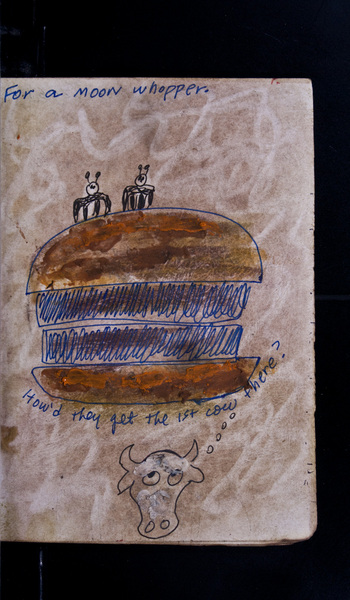 For a moon whopper.
How'd they get the 1st cow there?